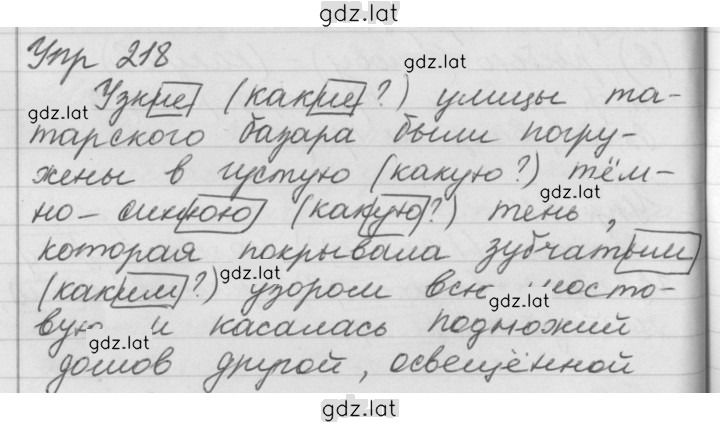 gdz.lat
Упр 218
gdz.lat
Узкие (какие?) улицы та-
gdz.lat
тарского базара были погру-
жены в густую (какую?) тём-
gdz.lat
но-синюю (какую?) тень,
которая покрывала зубчатым
gdz.lat
(каким?) узором всю мосто-
gdz.lat
вую и касалась подножий
gdz.lat
домов другой, освещённой
gdz.lat